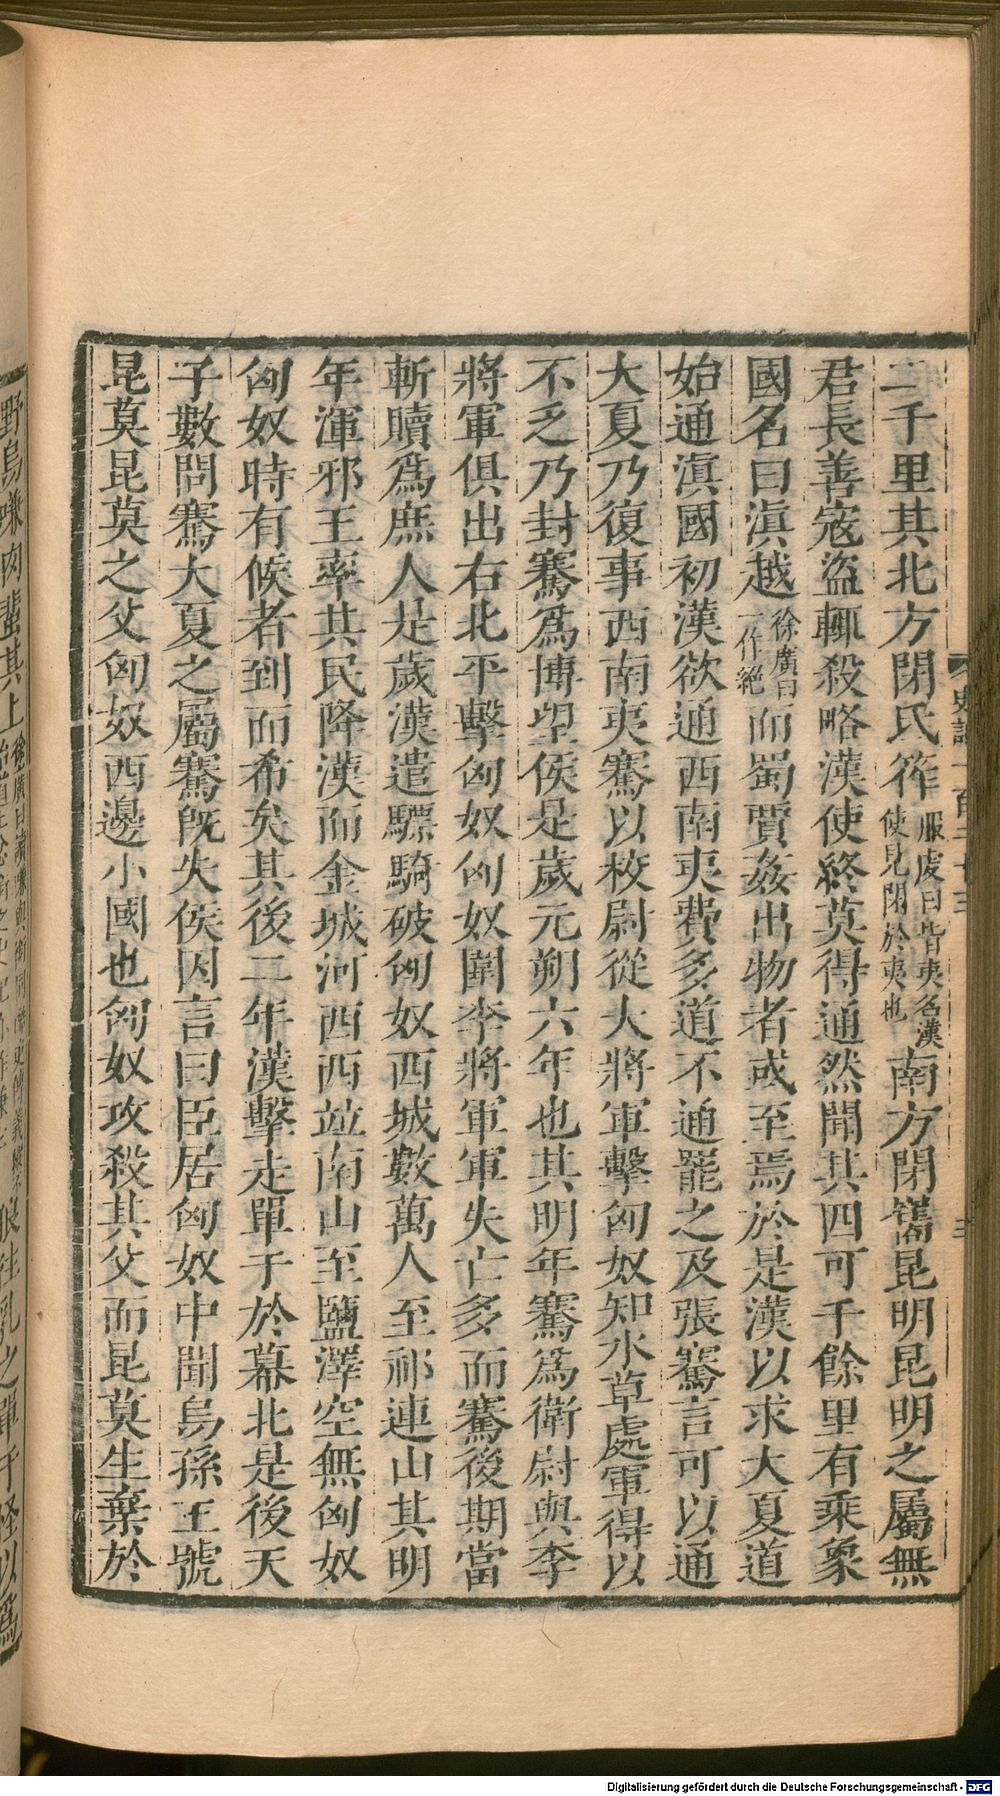 二千里其北方閉氏筰服虔曰皆夷名漢使見閉於夷也南方閉巂昆明昆明之屬無
君長善寇盜輒殺略漢使終莫得通然聞其西可千餘里有乘象
國名曰滇越徐廣曰一作絶而蜀賈姦出物者或至焉於是漢以求大夏道
始通滇國初漢欲通西南夷費多道不通罷之及張騫言可以通
大夏乃復事西南夷騫以校尉從大將軍擊匈奴知水草處軍得以
不乏乃封騫爲博望侯是歲元朔六年也其明年騫爲衛尉與李
將軍俱出右北平擊匈奴匈奴圍李將軍軍失亡多而騫後期當
斬贖爲庶人是歲漢遣驃騎破匈奴西城數萬人至祁連山其明
年渾邪王率其民降漢而金城河西西竝南山至鹽澤空無匈奴
匈奴時有候者到而希矣其後二年漢擊走單于於幕北是後天
子數問騫大夏之屬騫旣失侯因言曰臣居匈奴中聞烏孫王號
昆莫昆莫之父匈奴西邊小國也匈奴攻殺其父而昆莫生棄於
野烏嗛肉蜚其上 狼往乳之單于怪以爲
史記一百二十三
三
Digitalisierung gefördert durch die Deutsche Forschungsgemeinschaft - DFG